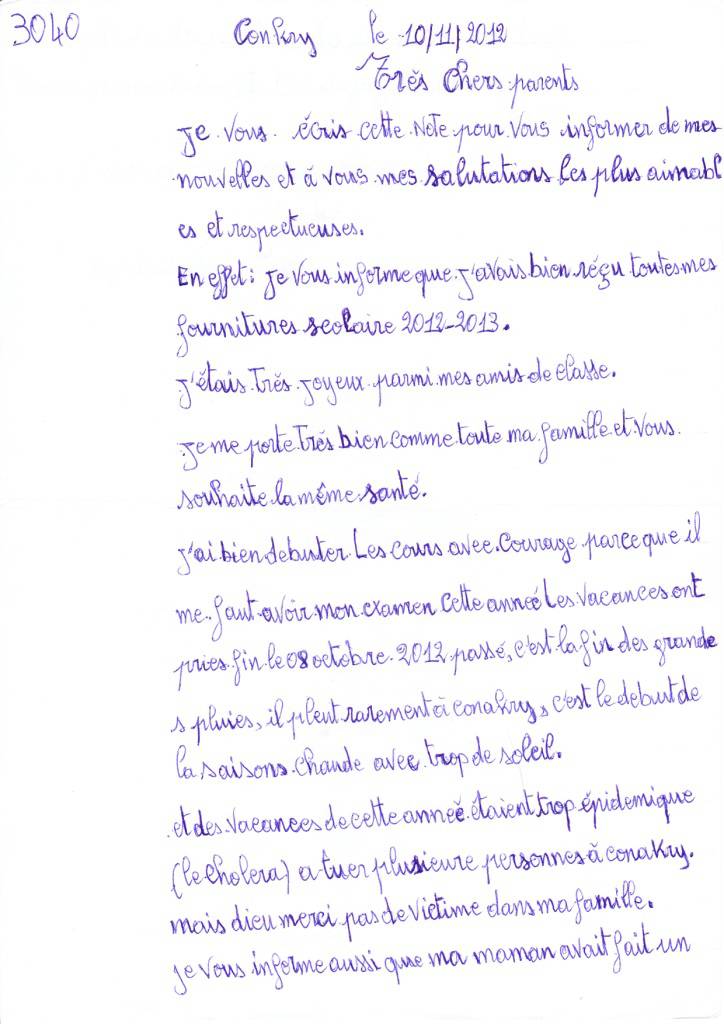 3040
Conkry le 10/11/2012
Très Chers parents
Je vous écris cette Note pour vous informer de mes
nouvelles et à vous mes salutations les plus aimabl
es et respectueuses.
En effet : je vous informe que j'avais bien réçu toutes mes
fournitures scolaire 2012-2013.
j'étais Très joyeux parmi mes amis de classe.
je me porte Très bien comme toute ma famille et vous
souhaite la même santé.
j'ai bien debuter Les cours avec courage parce que il
me faut avoir mon examen cette anneé Les vacances ont
pries fin le 08 octobre 2012 passé, c'est la fin des grande
s pluies, il pleut rarement à conakry, c'est le debut de
la saisons chaude avec trop de soleil.
et des vacances de cette anneé étaient trop épidemique
(le cholera) a tuer plusieure personnes à conakry.
mais dieu merci pas de victime dans ma famille.
je vous informe aussi que ma maman avait fait un